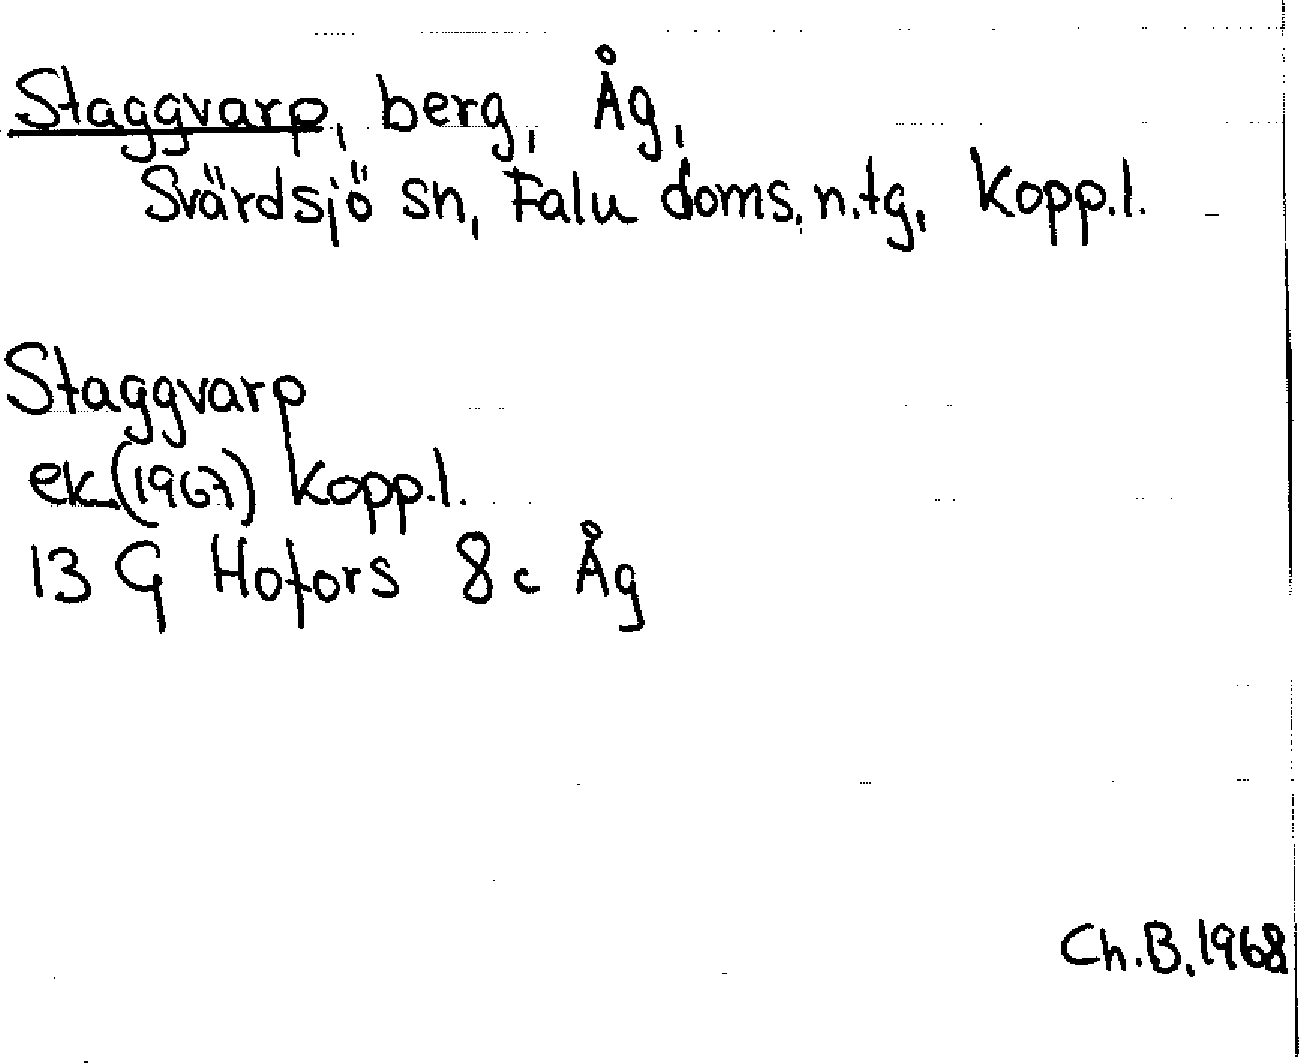 Staggvarp, berg, Åg,
Svärdsjö sn, Falu doms, n.tg, Kopp.l.
Staggvarp
ek (1967) Kopp.l.
13 G Hofors 8 c Åg
Ch.B. 1968